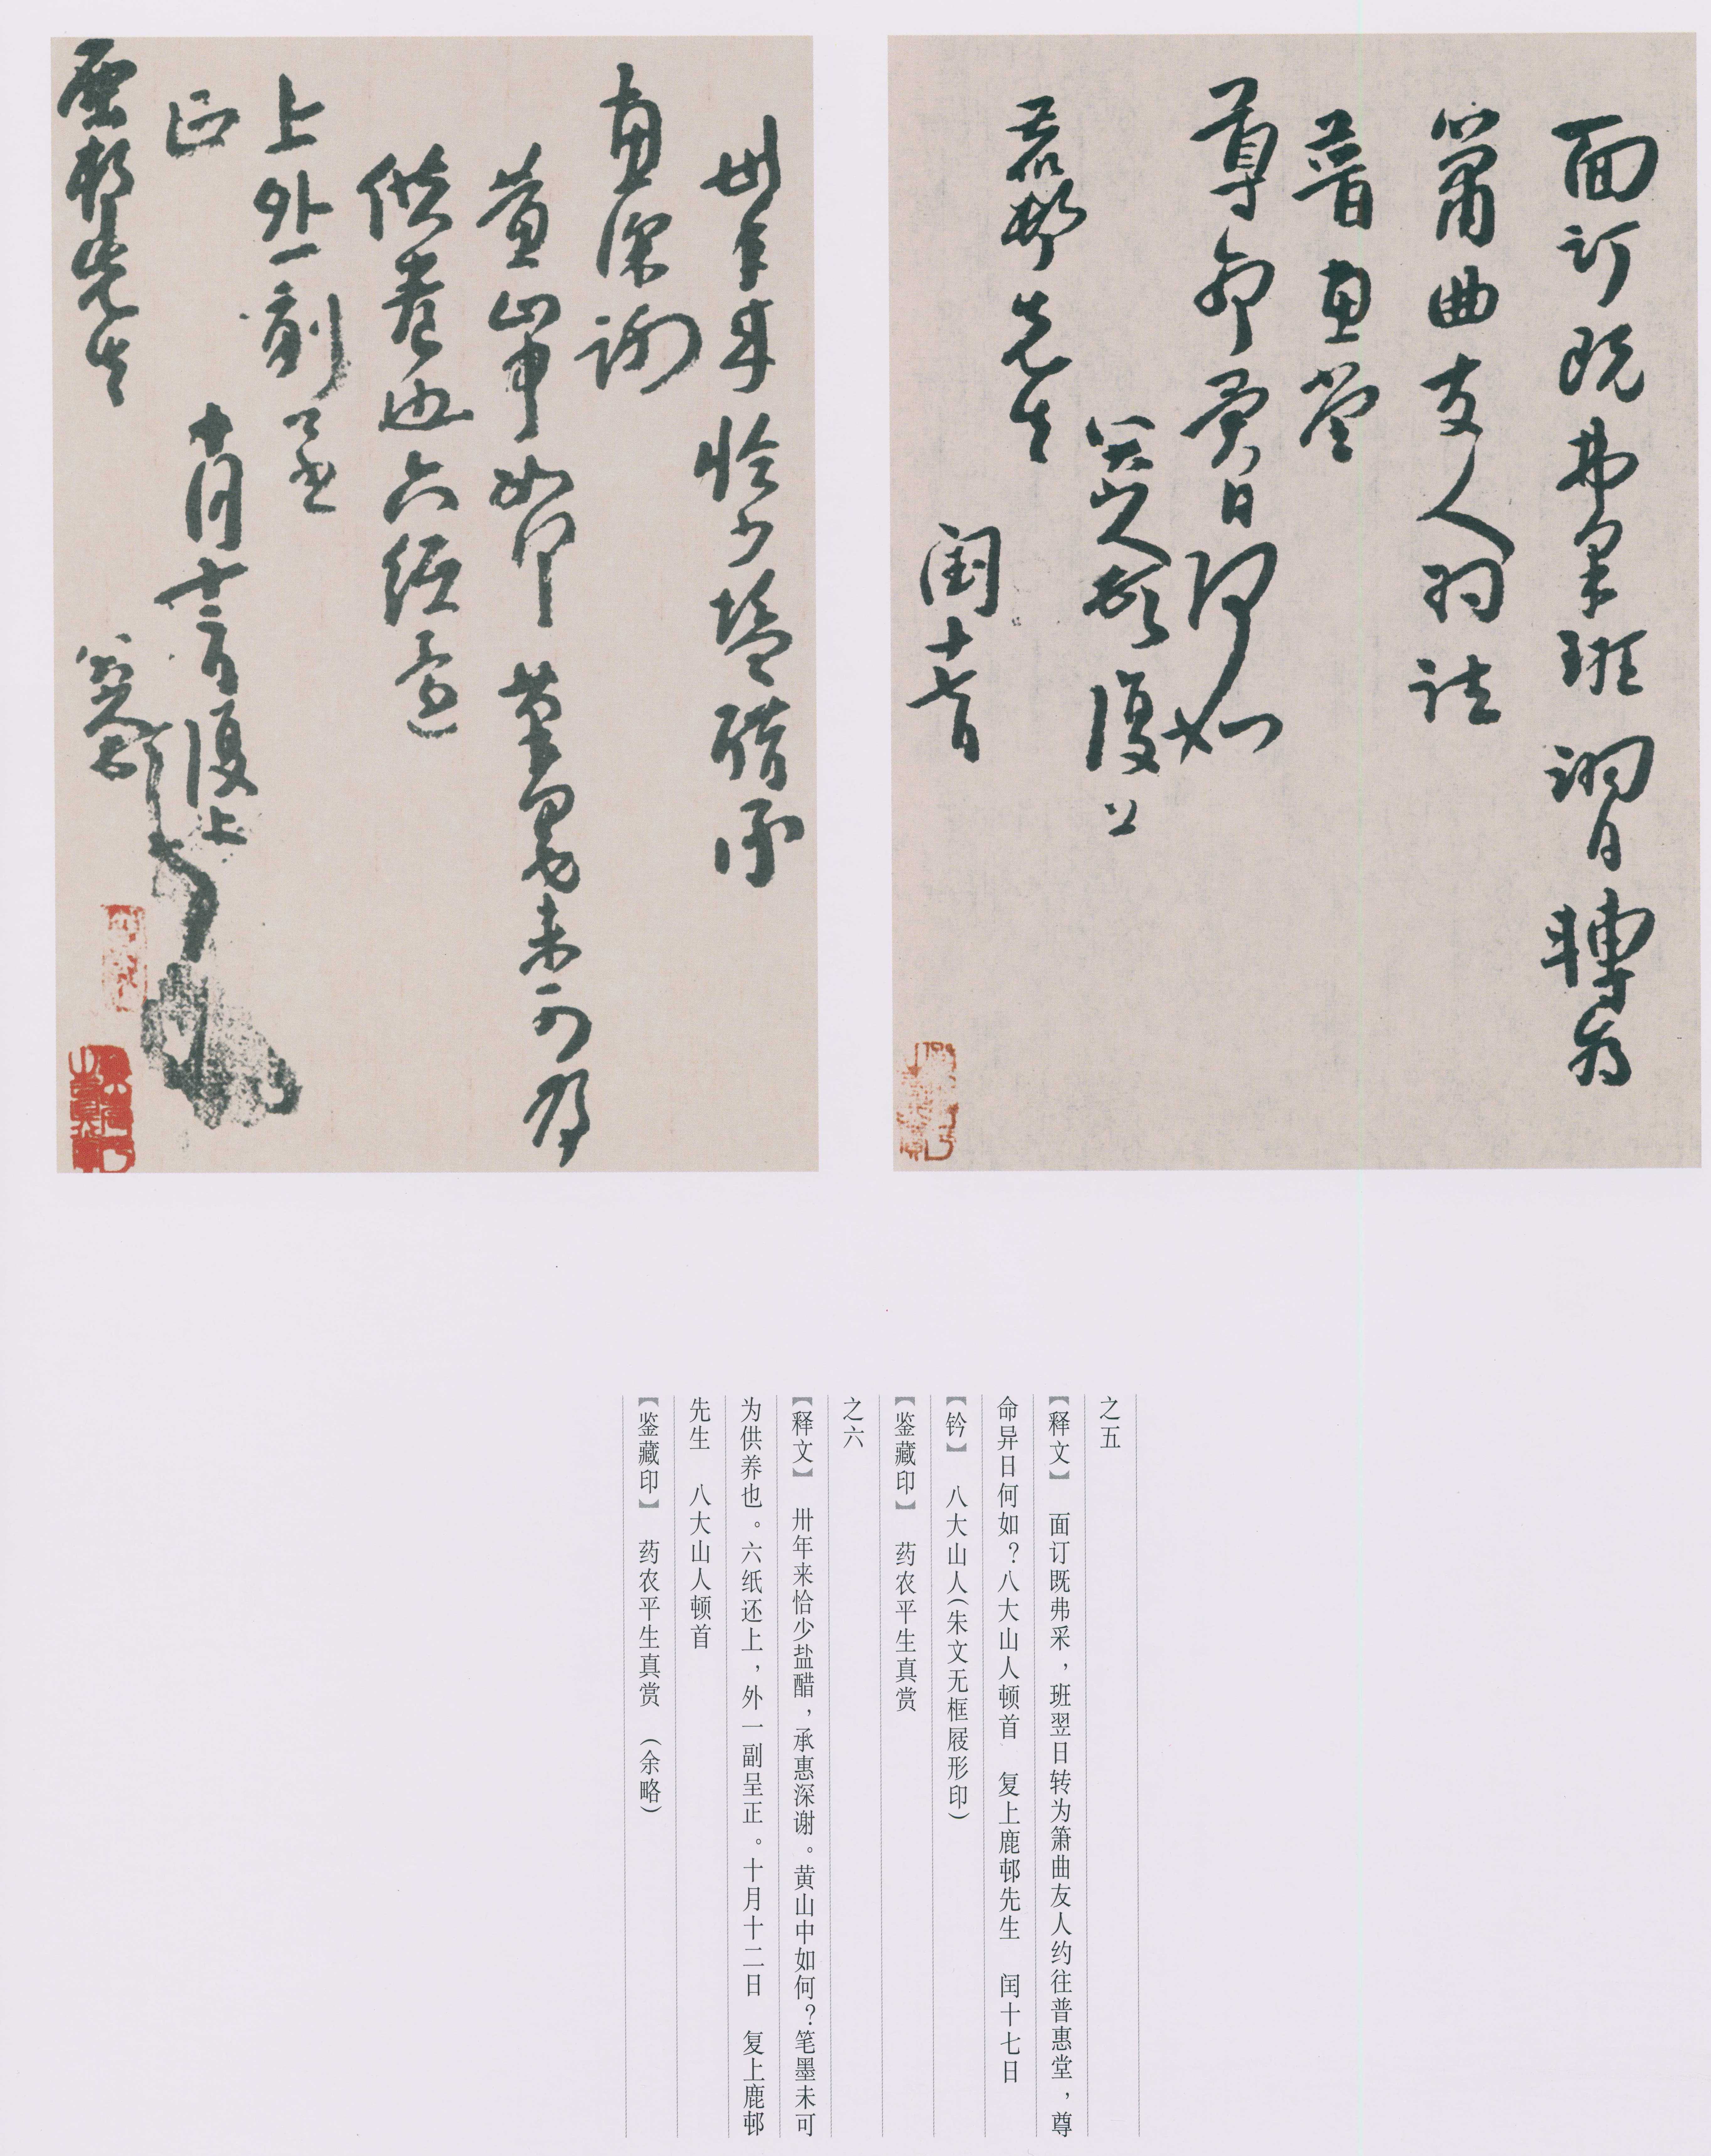 面订既弗采班翌日转为
箫曲友人约往
普惠堂
尊命异日何如
八大山人顿首复上
鹿邨先生
闰十七日
卅年来恰少盐醋承
惠深谢
黄山中如何笔墨未可为
供养也六纸还
上外一副呈
正
十月十二日复上
鹿邨先生
八大山人顿首
之五
【释文】 面订既弗采，班翌日转为箫曲友人约往普惠堂，尊
命异日何如？八大山人顿首 复上鹿邨先生 闰十七日
【钤】 八大山人（朱文无框屐形印）
【鉴藏印】 药农平生真赏
之六
【释文】 卅年来恰少盐醋，承惠深谢。黄山中如何？笔墨未可
为供养也。六纸还上，外一副呈正。十月十二日 复上鹿邨
先生 八大山人顿首
【鉴藏印】 药农平生真赏 （余略）